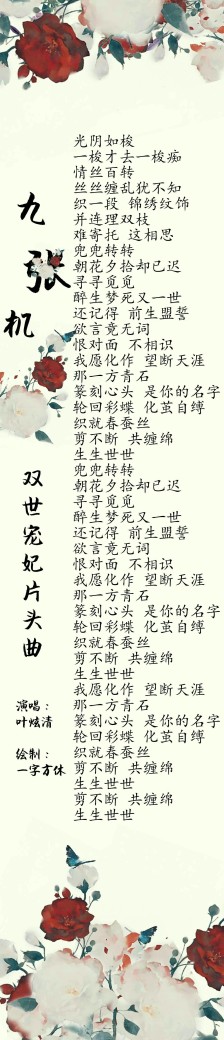 九张机
双世宠妃片头曲
演唱：
叶炫清
绘制：
一字方休
光阴如梭
一梭才去一梭痴
情丝百转
丝丝缠乱犹不知
织一段 锦绣纹饰
并连理双枝
难寄托 这相思
兜兜转转
朝花夕拾却已迟
寻寻觅觅
醉生梦死又一世
还记得 前生盟誓
欲言竟无词
恨对面 不相识
我愿化作 望断天涯
那一方青石
篆刻心头 是你的名字
轮回彩蝶 化茧自缚
织就春蚕丝
剪不断 共缠绵
生生世世
兜兜转转
朝花夕拾却已迟
寻寻觅觅
醉生梦死又一世
还记得 前生盟誓
欲言竟无词
恨对面 不相识
我愿化作 望断天涯
那一方青石
篆刻心头 是你的名字
轮回彩蝶 化茧自缚
织就春蚕丝
剪不断 共缠绵
生生世世
我愿化作 望断天涯
那一方青石
篆刻心头 是你的名字
轮回彩蝶 化茧自缚
织就春蚕丝
剪不断 共缠绵
生生世世
剪不断 共缠绵
生生世世